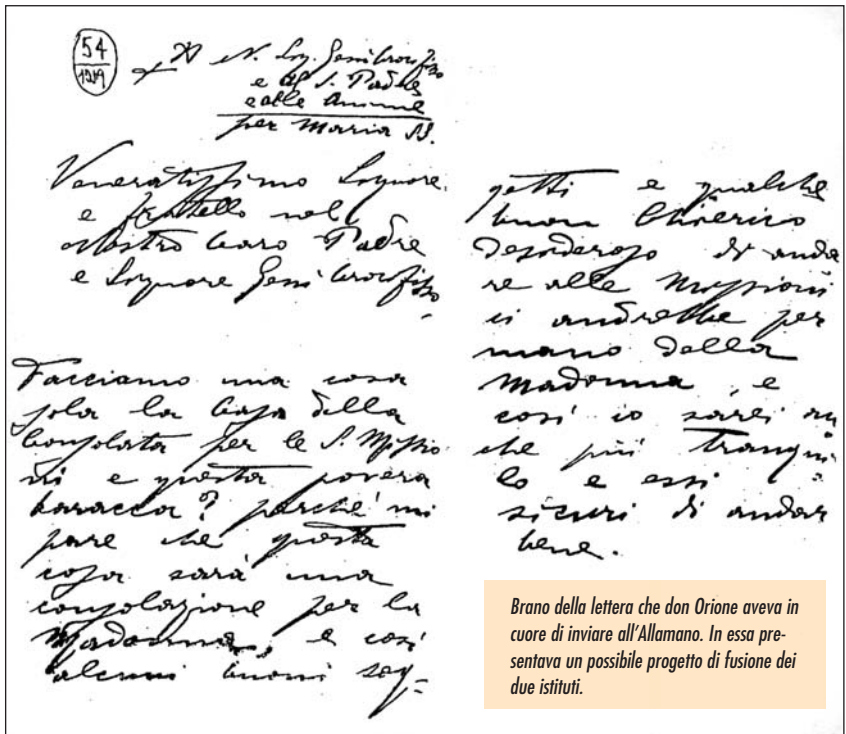 54
1919
A N. Sig. Gesù Crocifisso
e al S. Padre
e alle Anime
per Maria SS.
Veneratissimo Signore
e fratello nel
Nostro Caro Padre
e Signore Gesù Crocifisso,
Facciamo una cosa
sola la Casa della
Consolata per le S. Missio
ni e questa povera
baracca? perché mi
pare che questa
cosa sarà una
consolazione per la
Madonna, e così
alcuni buoni sog=
getti e qualche
buon Chierico
desideroso di anda
re alle Missioni
ci andrebbe per
mano della
Madonna, e
così io sarei an
che più tranqui
lo e essi
sicuri di andar
bene.
Brano della lettera che don Orione aveva in
cuore di inviare all'Allamano. In essa pre-
sentava un possibile progetto di fusione dei
due istituti.